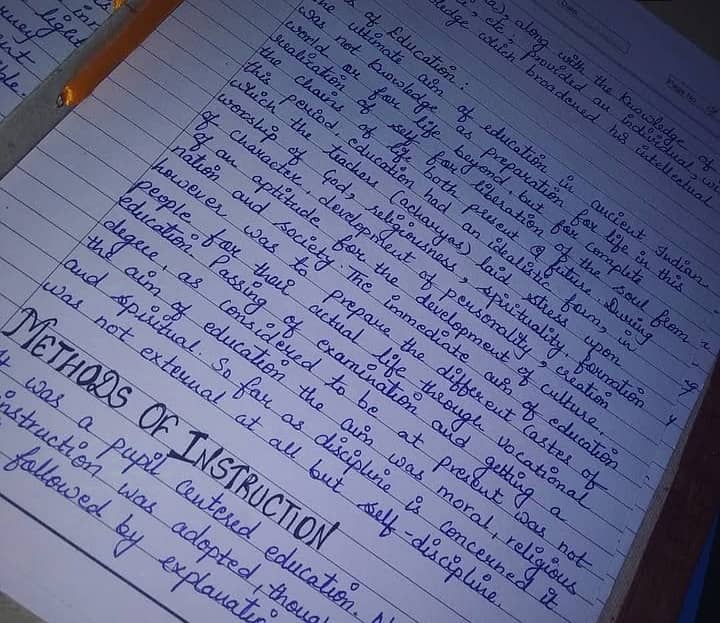 along with the knowledge of
etc, provided an individual,
which broadened his intellectual
of Education:
ultimate aim of education in ancient Indian
was not knowledge as preparation for life in this
world or for life beyond, but for complete
realization of self for liberation of the soul from
the chains of life both present & future. During
this period, education had an idealistic form, in
which the teachers (acharyas) laid stress upon
worship of God, religiousness, spirituality, formation
of character, development of personality, creation
of an aptitude for the development of culture,
nation and society. The immediate aim of education
however was to prepare the different castes of
people for their actual life through vocational
education. Passing of examination and getting a
degree, as considered to be at present was not
the aim of education the aim was moral, religious
and spiritual. So far as discipline is concerned it
was not external at all but self-discipline.
METHODS OF INSTRUCTION
It was a pupil centered education.
instruction was adopted,
followed by